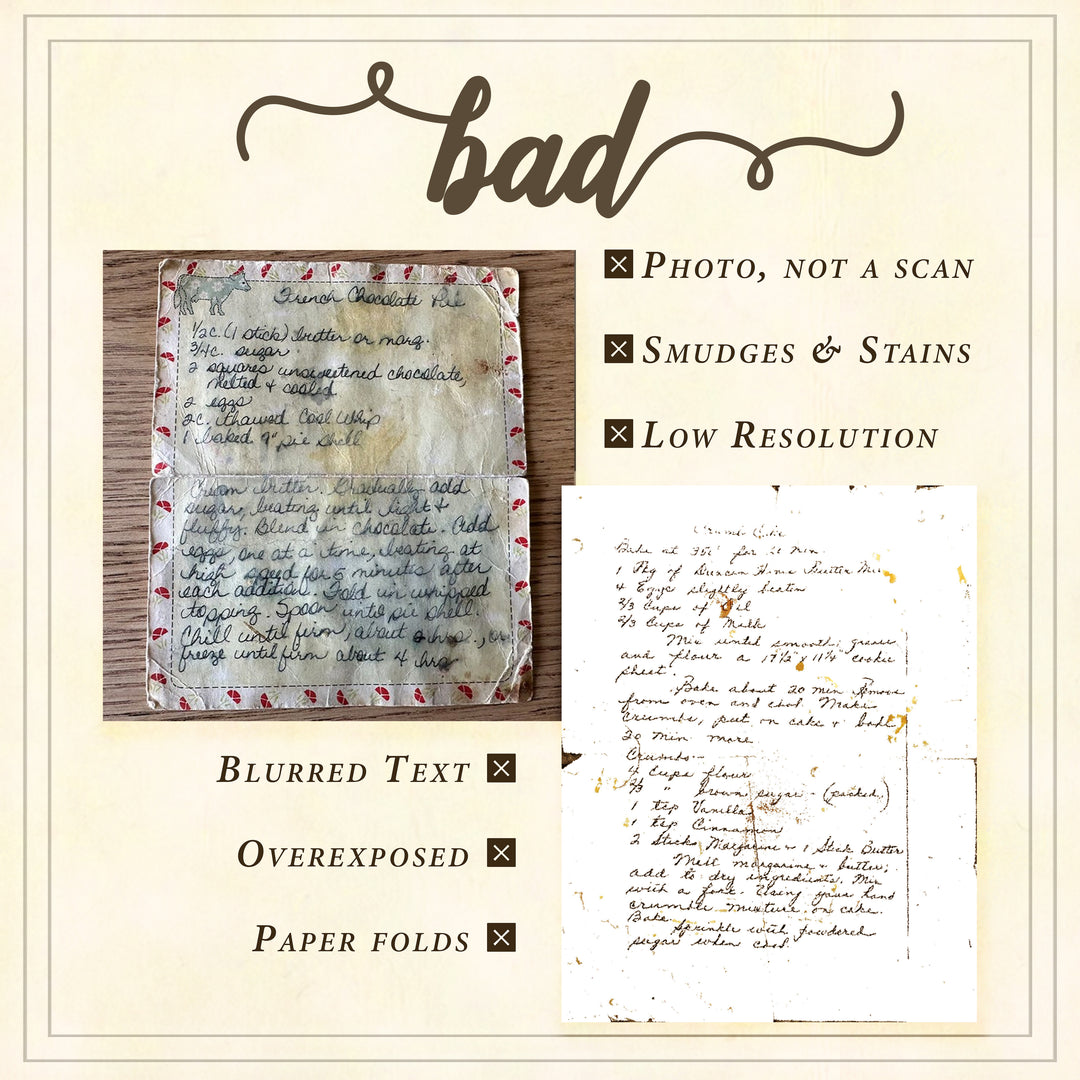 bad
PHOTO, NOT A SCAN
SMUDGES & STAINS
LOW RESOLUTION
French Chocolate Pie
1/2 c. (1 stick) butter or marg.
3/4 c. sugar
2 squares unsweetened chocolate,
melted & cooled
2 eggs
2 c. thawed Cool Whip
1 baked 9" pie shell
Cream butter. Gradually add
sugar, beating until light &
fluffy. Blend in chocolate. Add
eggs, one at a time, beating at
high speed for 5 minutes after
each addition. Fold in whipped
topping. Spoon into pie shell.
Chill until firm, about 2 hrs., or
freeze until firm about 4 hrs
Crumb Cake
Bake at 350° for 20 min.
1 Pkg of Duncan Hines Butter
4 Eggs slightly beaten
2/3 Cups of Oil
2/3 Cups of Milk
Mix until smooth; grease
and flour a 17 1/2" x 11 1/4" cookie
sheet.
Bake about 20 min
from oven and cool. Make
crumbs, put on cake & bake
20 min more
Crumbs -
4 Cups flour
2/3 " brown sugar - (packed)
1 tsp Vanilla
1 tsp Cinnamon
2 Sticks Margarine & 1 Stick Butter
Melt margarine & butter;
add to dry ingredients. Mix
with a fork. Using your hand
crumble mixture on cake.
Bake
Sprinkle with powdered
sugar when cool.
BLURRED TEXT
OVEREXPOSED
PAPER FOLDS